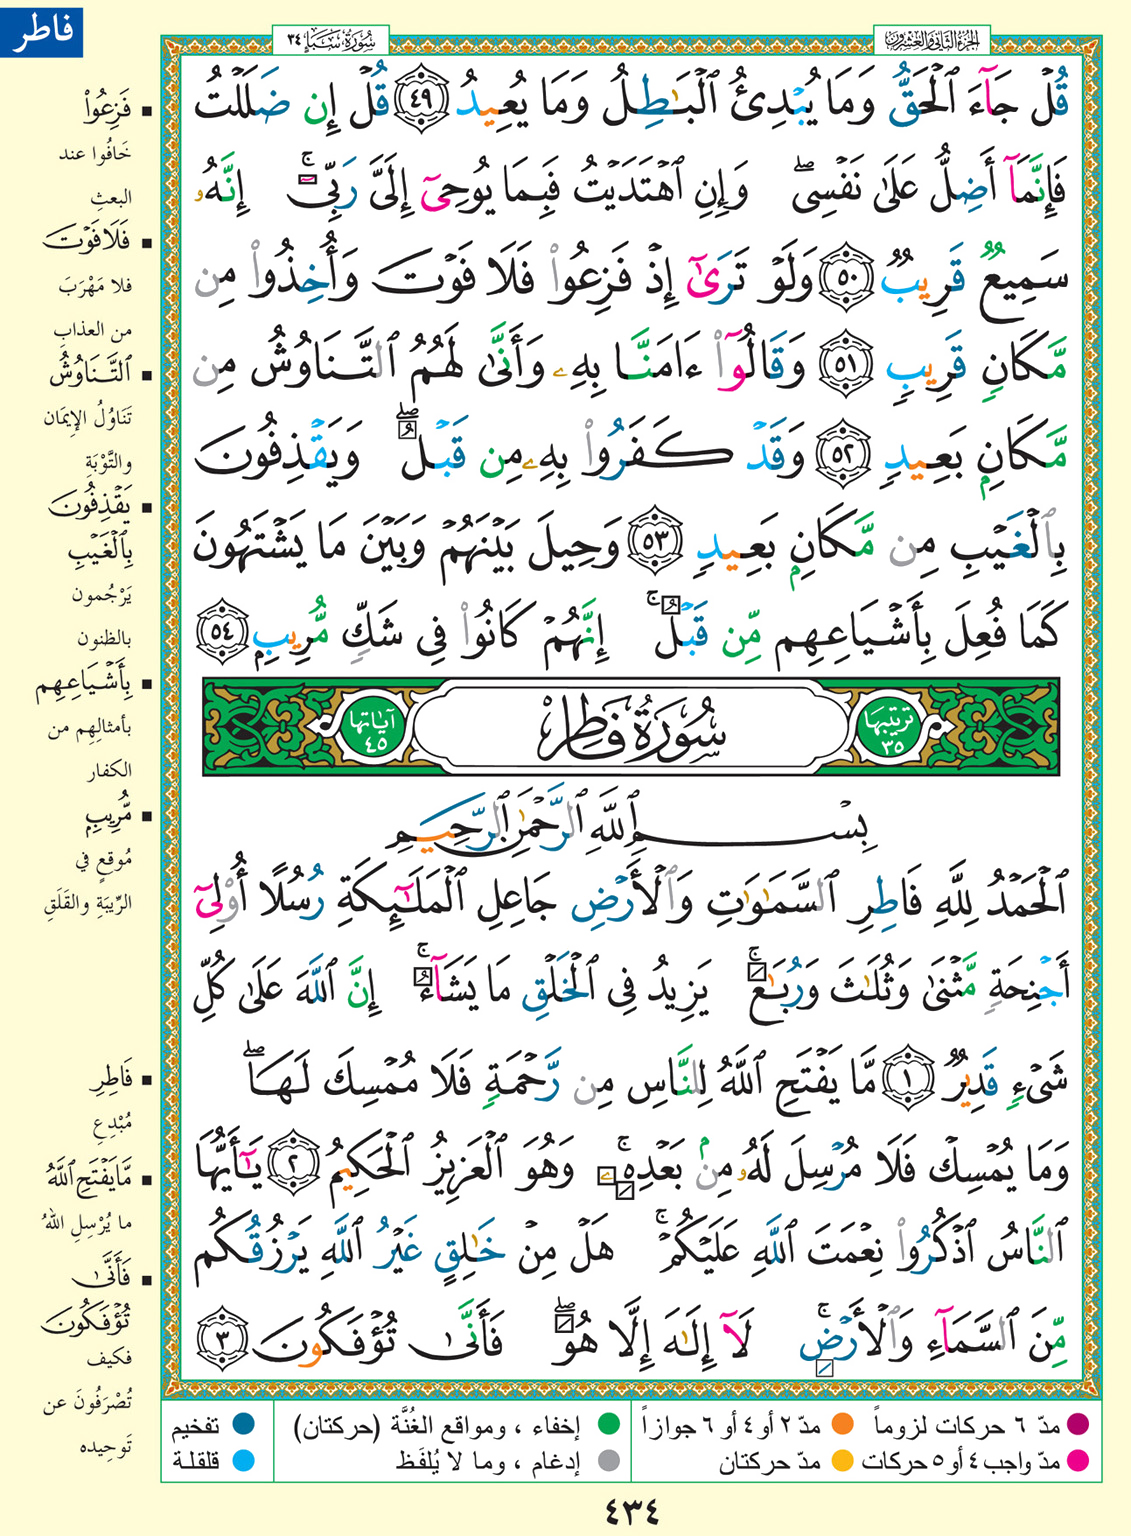 فاطر
سُورَةُ سَبَإٍ ٣٤
الجزء الثاني والعشرون
قُلۡ جَآءَ ٱلۡحَقُّ وَمَا يُبۡدِئُ ٱلۡبَٰطِلُ وَمَا يُعِيدُ ٤٩ قُلۡ إِن ضَلَلۡتُ
فَإِنَّمَآ أَضِلُّ عَلَىٰ نَفۡسِيۖ وَإِنِ ٱهۡتَدَيۡتُ فَبِمَا يُوحِيٓ إِلَيَّ رَبِّيٓۚ إِنَّهُۥ
سَمِيعٞ قَرِيبٞ ٥٠ وَلَوۡ تَرَىٰٓ إِذۡ فَزِعُواْ فَلَا فَوۡتَ وَأُخِذُواْ مِن
مَّكَانٖ قَرِيبٖ ٥١ وَقَالُوٓاْ ءَامَنَّا بِهِۦ وَأَنَّىٰ لَهُمُ ٱلتَّنَاوُشُ مِن
مَّكَانِۭ بَعِيدٖ ٥٢ وَقَدۡ كَفَرُواْ بِهِۦ مِن قَبۡلُۖ وَيَقۡذِفُونَ
بِٱلۡغَيۡبِ مِن مَّكَانِۭ بَعِيدٖ ٥٣ وَحِيلَ بَيۡنَهُمۡ وَبَيۡنَ مَا يَشۡتَهُونَ
كَمَا فُعِلَ بِأَشۡيَاعِهِم مِّن قَبۡلُۚ إِنَّهُمۡ كَانُواْ فِي شَكّٖ مُّرِيبِۭ ٥٤
ترتيبها ٣٥ سُورَةُ فَاطِرٍ آياتها ٤٥
بِسۡمِ ٱللَّهِ ٱلرَّحۡمَٰنِ ٱلرَّحِيمِ
ٱلۡحَمۡدُ لِلَّهِ فَاطِرِ ٱلسَّمَٰوَٰتِ وَٱلۡأَرۡضِ جَاعِلِ ٱلۡمَلَٰٓئِكَةِ رُسُلًا أُوْلِيٓ
أَجۡنِحَةٖ مَّثۡنَىٰ وَثُلَٰثَ وَرُبَٰعَۚ يَزِيدُ فِي ٱلۡخَلۡقِ مَا يَشَآءُۚ إِنَّ ٱللَّهَ عَلَىٰ كُلِّ
شَيۡءٖ قَدِيرٞ ١ مَّا يَفۡتَحِ ٱللَّهُ لِلنَّاسِ مِن رَّحۡمَةٖ فَلَا مُمۡسِكَ لَهَاۖ
وَمَا يُمۡسِكۡ فَلَا مُرۡسِلَ لَهُۥ مِنۢ بَعۡدِهِۦۚ وَهُوَ ٱلۡعَزِيزُ ٱلۡحَكِيمُ ٢ يَٰٓأَيُّهَا
ٱلنَّاسُ ٱذۡكُرُواْ نِعۡمَتَ ٱللَّهِ عَلَيۡكُمۡۚ هَلۡ مِنۡ خَٰلِقٍ غَيۡرُ ٱللَّهِ يَرۡزُقُكُم
مِّنَ ٱلسَّمَآءِ وَٱلۡأَرۡضِۚ لَآ إِلَٰهَ إِلَّا هُوَۖ فَأَنَّىٰ تُؤۡفَكُونَ ٣
فَزِعُواْ
خَافُوا عند
البعثِ
فَلَا فَوۡتَ
فلا مَهْرَبَ
من العذابِ
ٱلتَّنَاوُشُ
تَنَاوُلُ الإِيمَان
والتَّوْبَةِ
يَقۡذِفُونَ
بِٱلۡغَيۡبِ
يَرْجُمون
بالظنون
بِأَشۡيَاعِهِم
بأمثالِهِم من
الكفار
مُّرِيبِۭ
مُوقِعٍ في
الرِّيبَةِ والقَلَقِ
فَاطِرِ
مُبْدِعِ
مَّا يَفۡتَحِ ٱللَّهُ
ما يُرْسِلِ اللهُ
فَأَنَّىٰ
تُؤۡفَكُونَ
فكيف
تُصْرَفُونَ عن
تَوحِيدِه
مدّ ٦ حركات لزوماً
مدّ ٢ أو ٤ أو ٦ جوازاً
إخفاء ، ومواقع الغُنَّة (حركتان)
تفخيم
مدّ واجب ٤ أو ٥ حركات
مدّ حركتان
إدغام ، وما لا يُلفَظ
قلقلة
٤٣٤